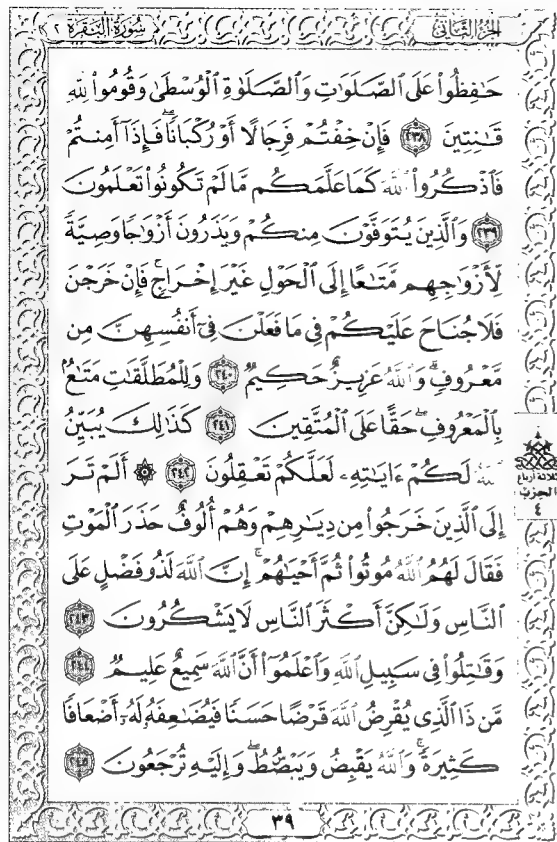 الجزء الثاني
سورة البقرة ٢
حَٰفِظُوا۟ عَلَى ٱلصَّلَوَٰتِ وَٱلصَّلَوٰةِ ٱلْوُسْطَىٰ وَقُومُوا۟ لِلَّهِ
قَٰنِتِينَ ٢٣٨ فَإِنْ خِفْتُمْ فَرِجَالًا أَوْ رُكْبَانًا ۖ فَإِذَآ أَمِنتُمْ
فَٱذْكُرُوا۟ ٱللَّهَ كَمَا عَلَّمَكُم مَّا لَمْ تَكُونُوا۟ تَعْلَمُونَ
٢٣٩ وَٱلَّذِينَ يُتَوَفَّوْنَ مِنكُمْ وَيَذَرُونَ أَزْوَٰجًا وَصِيَّةً
لِّأَزْوَٰجِهِم مَّتَٰعًا إِلَى ٱلْحَوْلِ غَيْرَ إِخْرَاجٍ ۚ فَإِنْ خَرَجْنَ
فَلَا جُنَاحَ عَلَيْكُمْ فِى مَا فَعَلْنَ فِىٓ أَنفُسِهِنَّ مِن
مَّعْرُوفٍ ۗ وَٱللَّهُ عَزِيزٌ حَكِيمٌ ٢٤٠ وَلِلْمُطَلَّقَٰتِ مَتَٰعٌۢ
بِٱلْمَعْرُوفِ ۖ حَقًّا عَلَى ٱلْمُتَّقِينَ ٢٤١ كَذَٰلِكَ يُبَيِّنُ
ٱللَّهُ لَكُمْ ءَايَٰتِهِۦ لَعَلَّكُمْ تَعْقِلُونَ ٢٤٢ ۞ أَلَمْ تَرَ
إِلَى ٱلَّذِينَ خَرَجُوا۟ مِن دِيَٰرِهِمْ وَهُمْ أُلُوفٌ حَذَرَ ٱلْمَوْتِ
فَقَالَ لَهُمُ ٱللَّهُ مُوتُوا۟ ثُمَّ أَحْيَٰهُمْ ۚ إِنَّ ٱللَّهَ لَذُو فَضْلٍ عَلَى
ٱلنَّاسِ وَلَٰكِنَّ أَكْثَرَ ٱلنَّاسِ لَا يَشْكُرُونَ ٢٤٣
وَقَٰتِلُوا۟ فِى سَبِيلِ ٱللَّهِ وَٱعْلَمُوٓا۟ أَنَّ ٱللَّهَ سَمِيعٌ عَلِيمٌ ٢٤٤
مَّن ذَا ٱلَّذِى يُقْرِضُ ٱللَّهَ قَرْضًا حَسَنًا فَيُضَٰعِفَهُۥ لَهُۥٓ أَضْعَافًا
كَثِيرَةً ۚ وَٱللَّهُ يَقْبِضُ وَيَبْصُۜطُ وَإِلَيْهِ تُرْجَعُونَ ٢٤٥
ثلاثة أرباع
الحزب
٤
٣٩